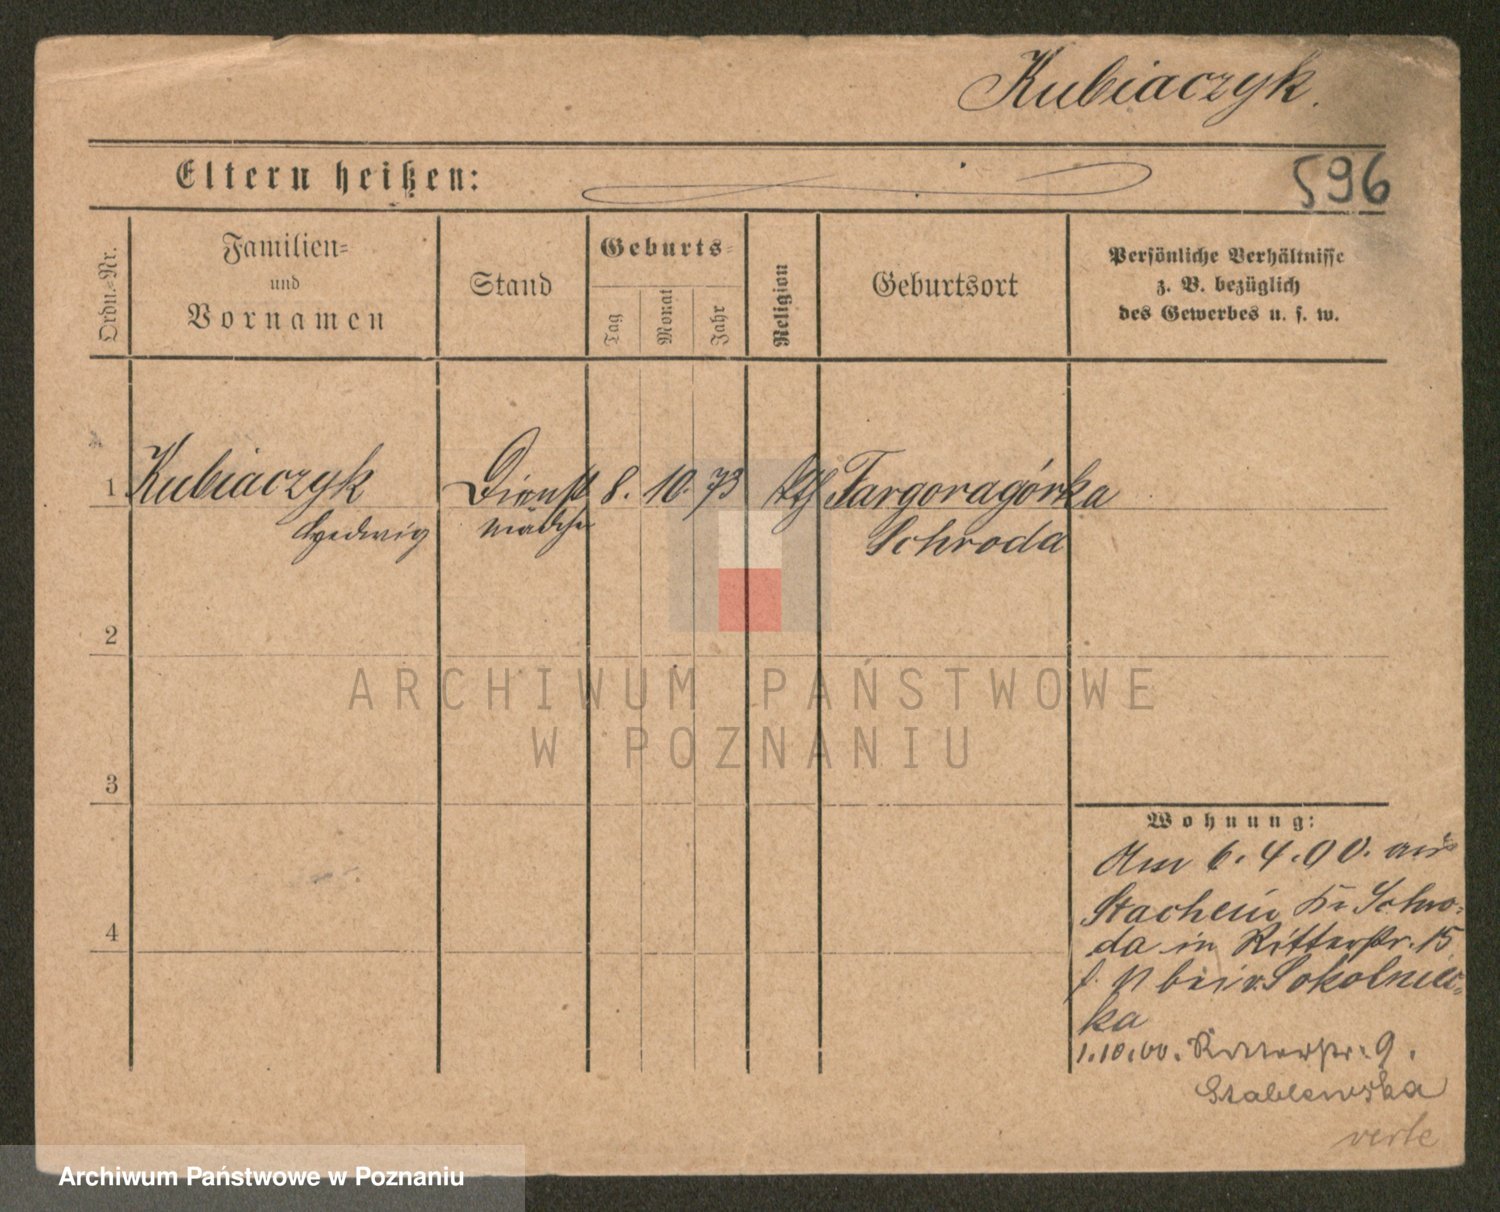 Kubiaczyk.
Eltern heißen:
596
Ordn.=Nr.
Familien=
und
Vornamen
Stand
Geburts=
Tag
Monat
Jahr
Religion
Geburtsort
Persönliche Verhältnisse
z. B. bezüglich
des Gewerbes u. s. w.
1 Kubiaczyk Dienst 8. 10. 73 kth Targoragórka
Hedwig mädchen Schroda
2
3
4
ARCHIWUM PAŃSTWOWE
W POZNANIU
Wohnung:
Am 6.4.00. aus
Kr Schro-
da in Ritterstr. 15
bei v. Sokolnic-
ka
1.10.00. Ritterstr. 9.
Stablewska
verte
Archiwum Państwowe w Poznaniu